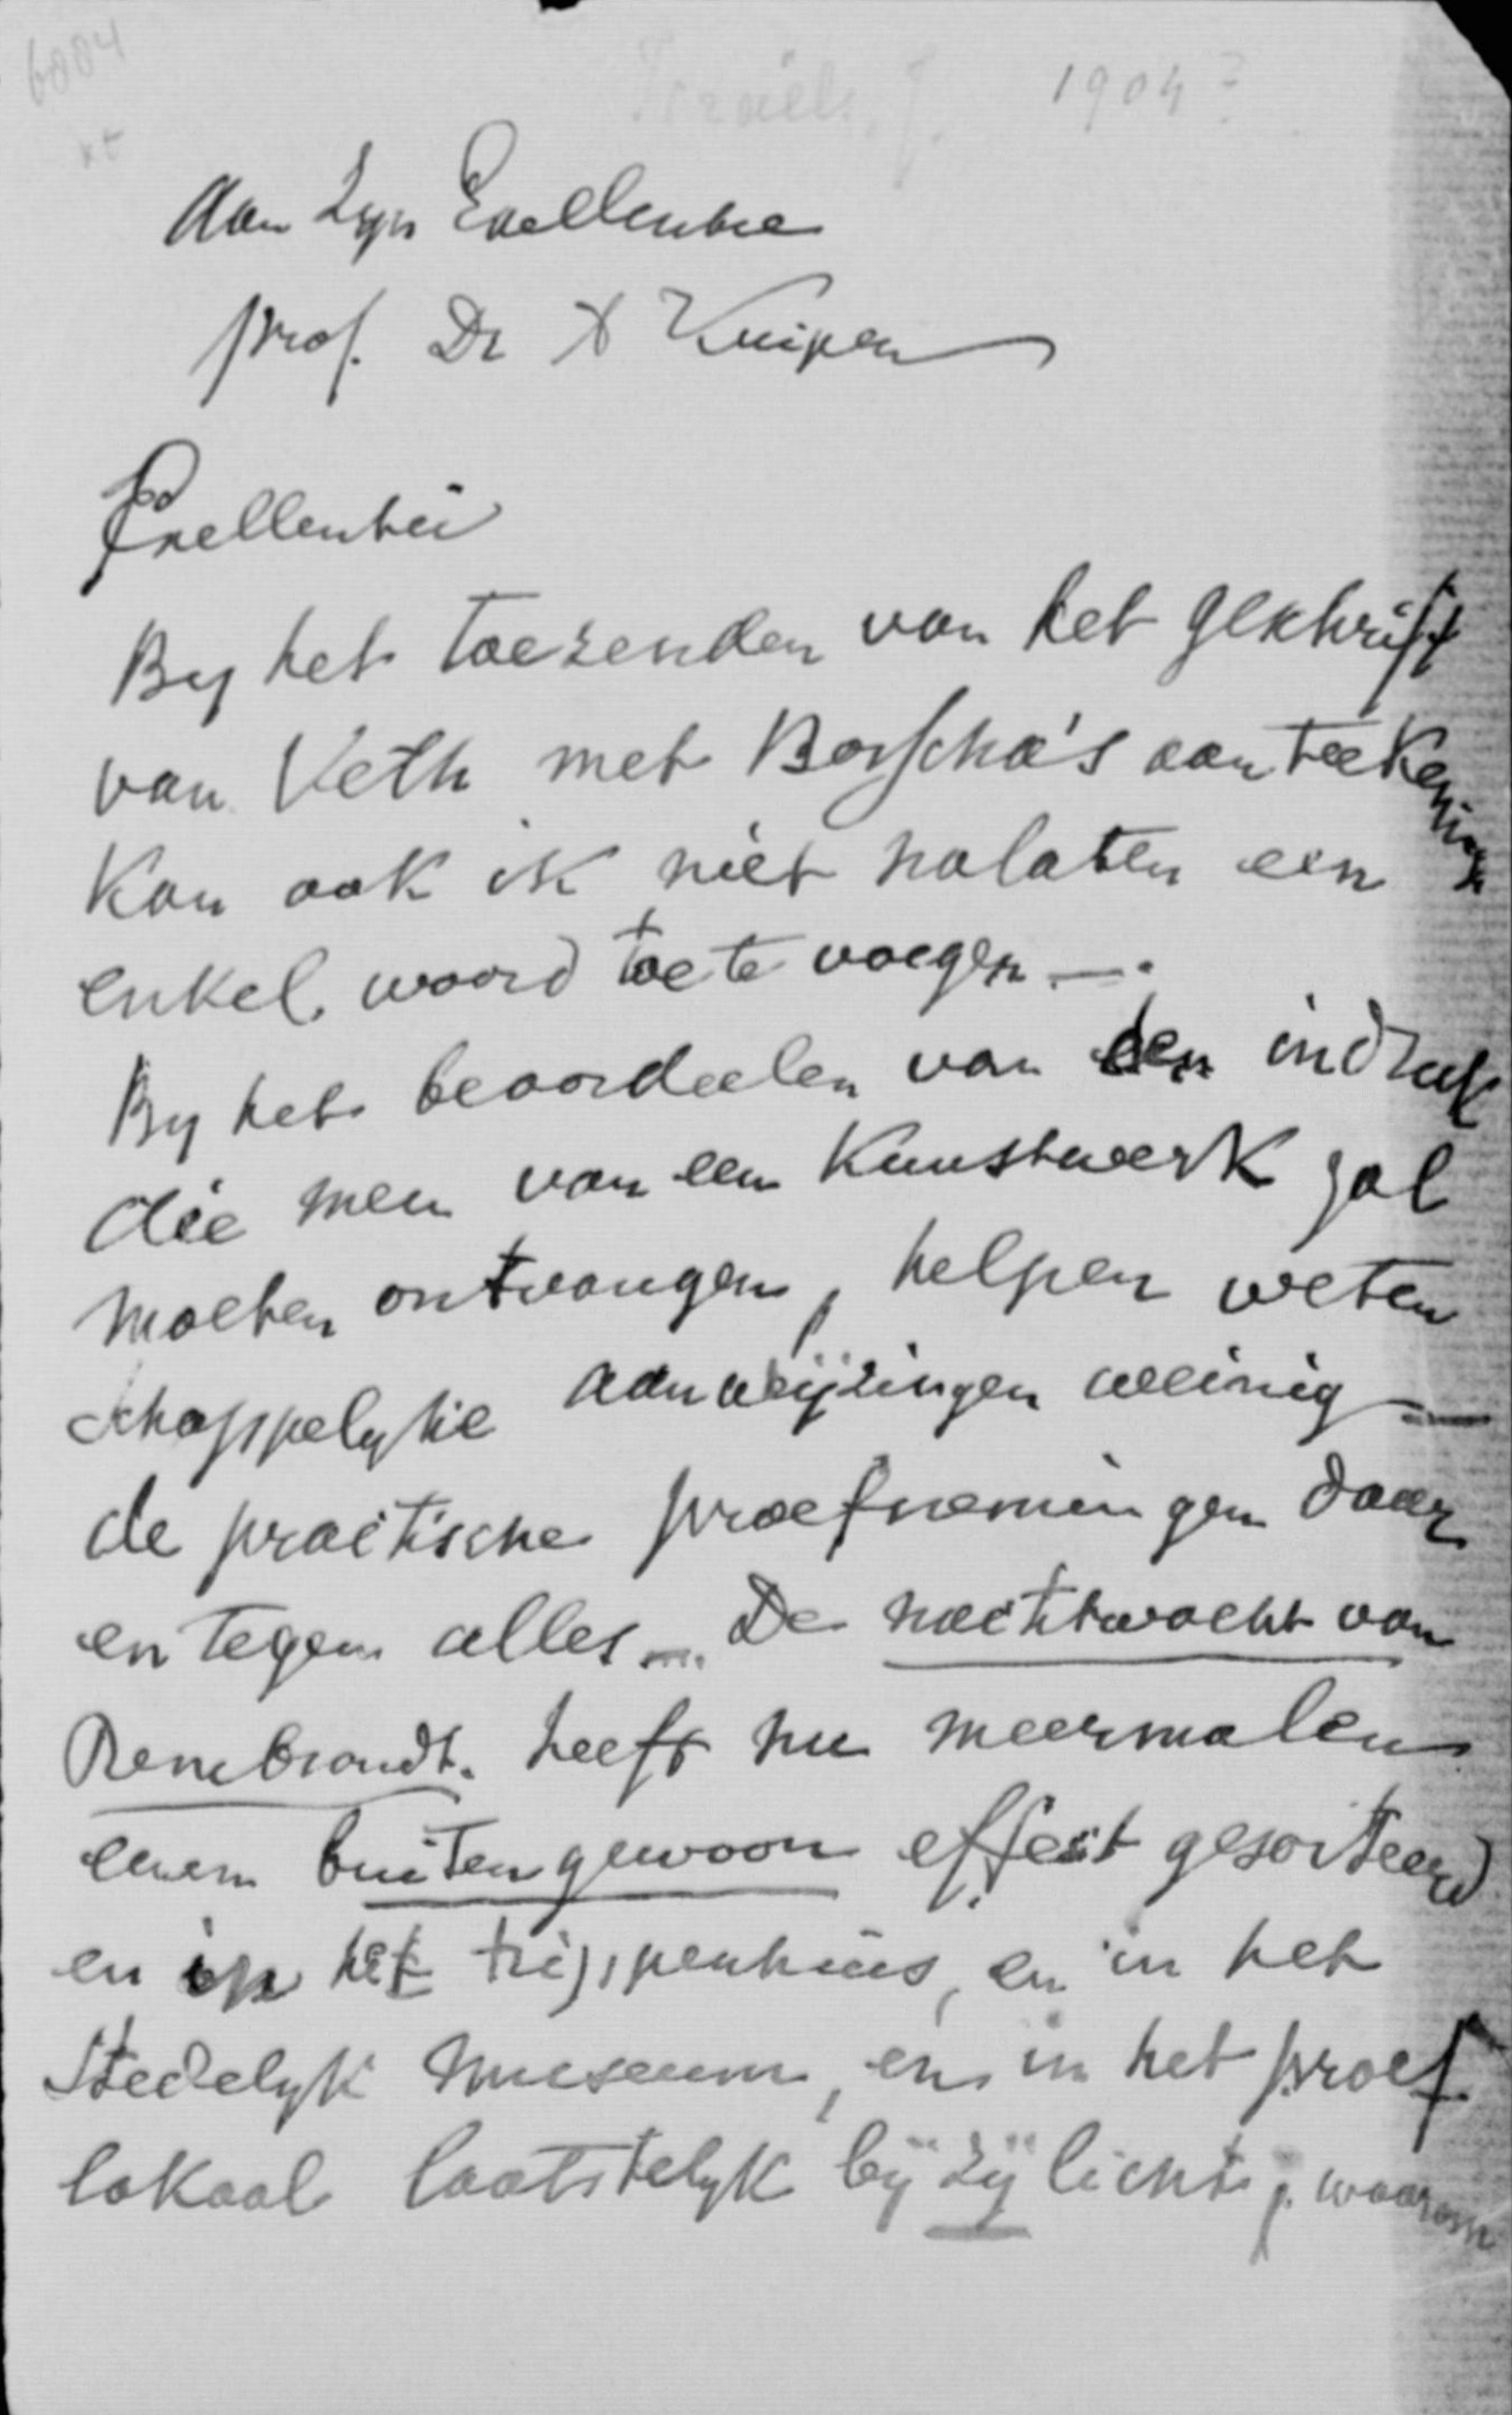 6884
Israëls, J. 1904?
Aan Zyn Exellentie
Prof. Dr A Kuiper
Exellentie
By het toezenden van het geschrift
van Veth met Borscha's aanteekeningen
kan ook ik niet nalaten een
enkel woord toe te voegen —.
By het beoordeelen van den indruk
die men van een Kunstwerk zal
moeten ontvangen, helpen weten
schappelyke aanwijzingen weinig —
de practische proefnemingen daar
en tegen alles —. De nachtwacht van
Rembrandt. heeft nu meermalen
eenen buitengewoon effect gesorteerd
en op het trippenhuis, en in het
Stedelyk Museum, en in het proef
lokaal laatstelyk bij zij licht; waarom